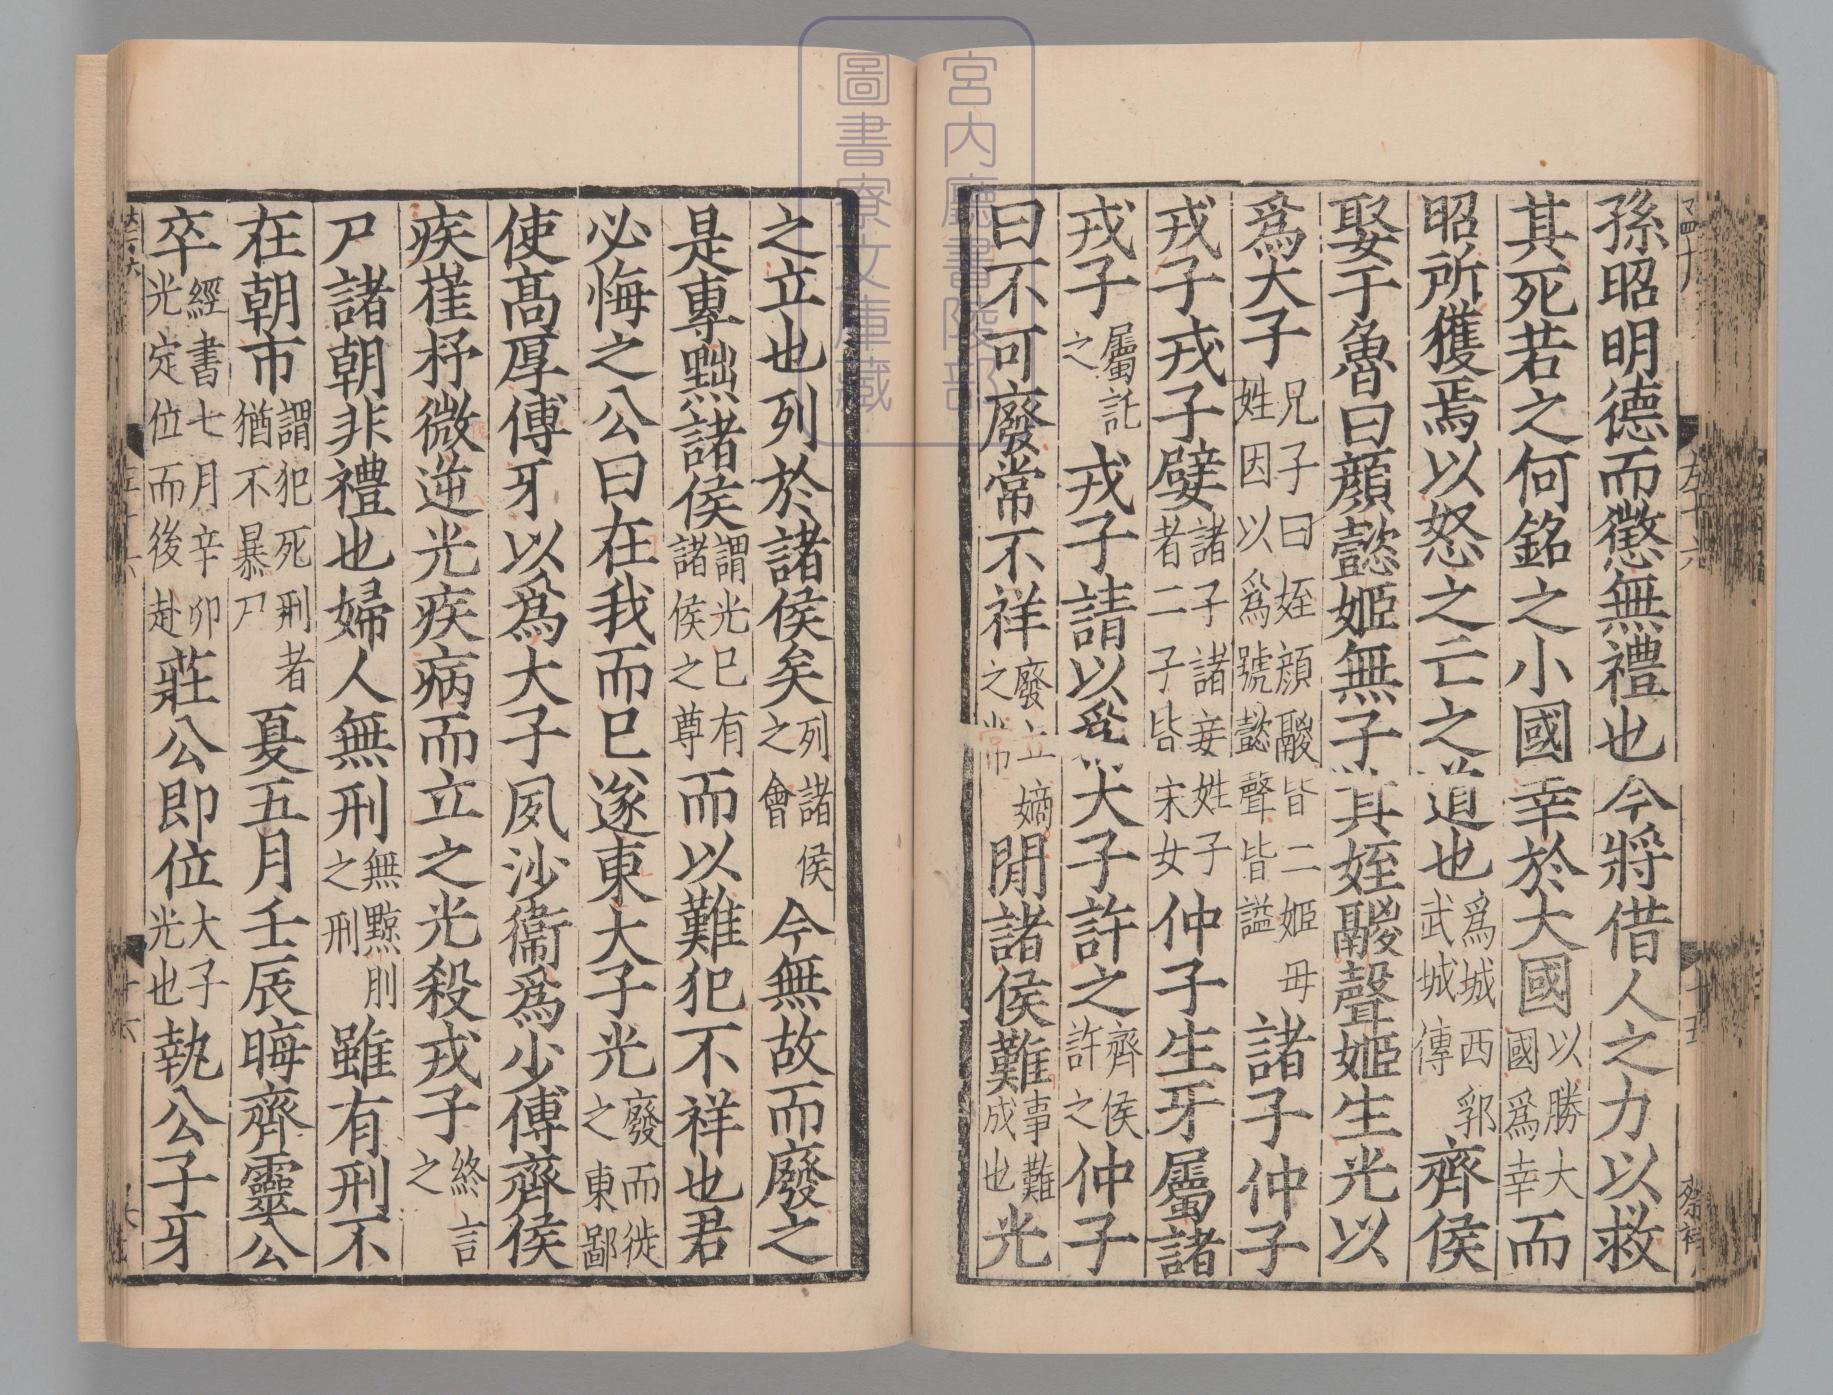 孫昭明德而懲無禮也今將借人之力以救
其死若之何銘之小國幸於大國以勝大國爲幸而
昭所獲焉以怒之亡之道也爲城西郛武城傳齊侯
娶于魯曰顏懿姬無子其姪鬷聲姬生光以
爲大子兄子曰姪顏鬷皆二姬母姓因以爲號懿聲皆謚諸子仲子
戎子戎子嬖諸子諸妾姓子者二子皆宋女仲子生牙屬諸
戎子屬託之戎子請以爲大子許之齊侯許之仲子
曰不可廢常不祥廢立嫡之常閒諸侯難事難成也光
之立也列於諸侯矣列諸侯之會今無故而廢之
是專黜諸侯謂光已有諸侯之尊而以難犯不祥也君
必悔之公曰在我而已遂東大子光廢而徙之東鄙
使髙厚傅牙以爲大子夙沙衞爲少傅齊侯
疾崔杼微逆光疾病而立之光殺戎子終言之
尸諸朝非禮也婦人無刑無黥刖之刑雖有刑不
在朝市謂犯死刑者猶不暴尸夏五月壬辰晦齊靈公
卒經書七月辛卯光定位而後赴莊公即位大子光也執公子牙
左十六
十五
宮内廳書陵部
圖書寮文庫藏